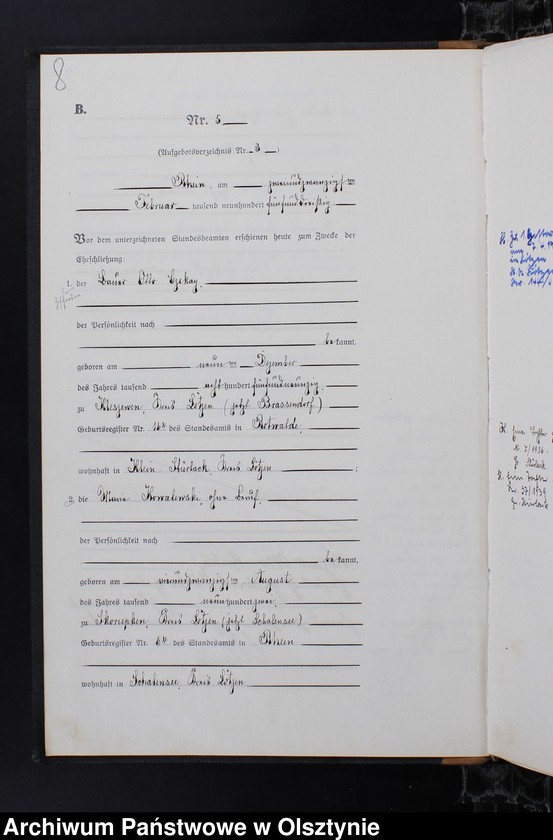 8
B.
Nr. 5
(Aufgebotsverzeichnis Nr. 3)
Rhein, am zweiundzwanzigsten
Februar tausend neunhundert fünfunddreißig.
Vor dem unterzeichneten Standesbeamten erschienen heute zum Zwecke der
Eheschließung:
1. der Bauer Otto Czekay,
der Persönlichkeit nach
bekannt,
geboren am neunten Dezember
des Jahres tausend achthundert fünfundneunzig,
zu Kleszewen, Kreis Lötzen (jetzt Brassendorf)
Geburtsregister Nr. 164 des Standesamts in Rotwalde,
wohnhaft in Klein Stürlack, Kreis Lötzen ;
2. die Marie Kowalewski, ohne Beruf,
der Persönlichkeit nach
bekannt,
geboren am vierundzwanzigsten August
des Jahres tausend neunhundert zwei,
zu Skorupken, Kreis Lötzen (jetzt Schalensee)
Geburtsregister Nr. 64 des Standesamts in Rhein
wohnhaft in Schalensee, Kreis Lötzen
Archiwum Państwowe w Olsztynie